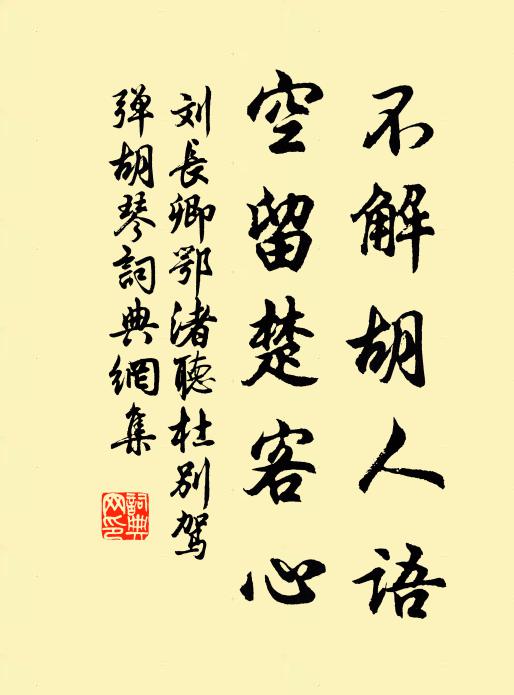 不解胡人语
空留楚客心
刘長卿鄂渚聽杜别驾
弹胡琴詞典網集
詞典网印